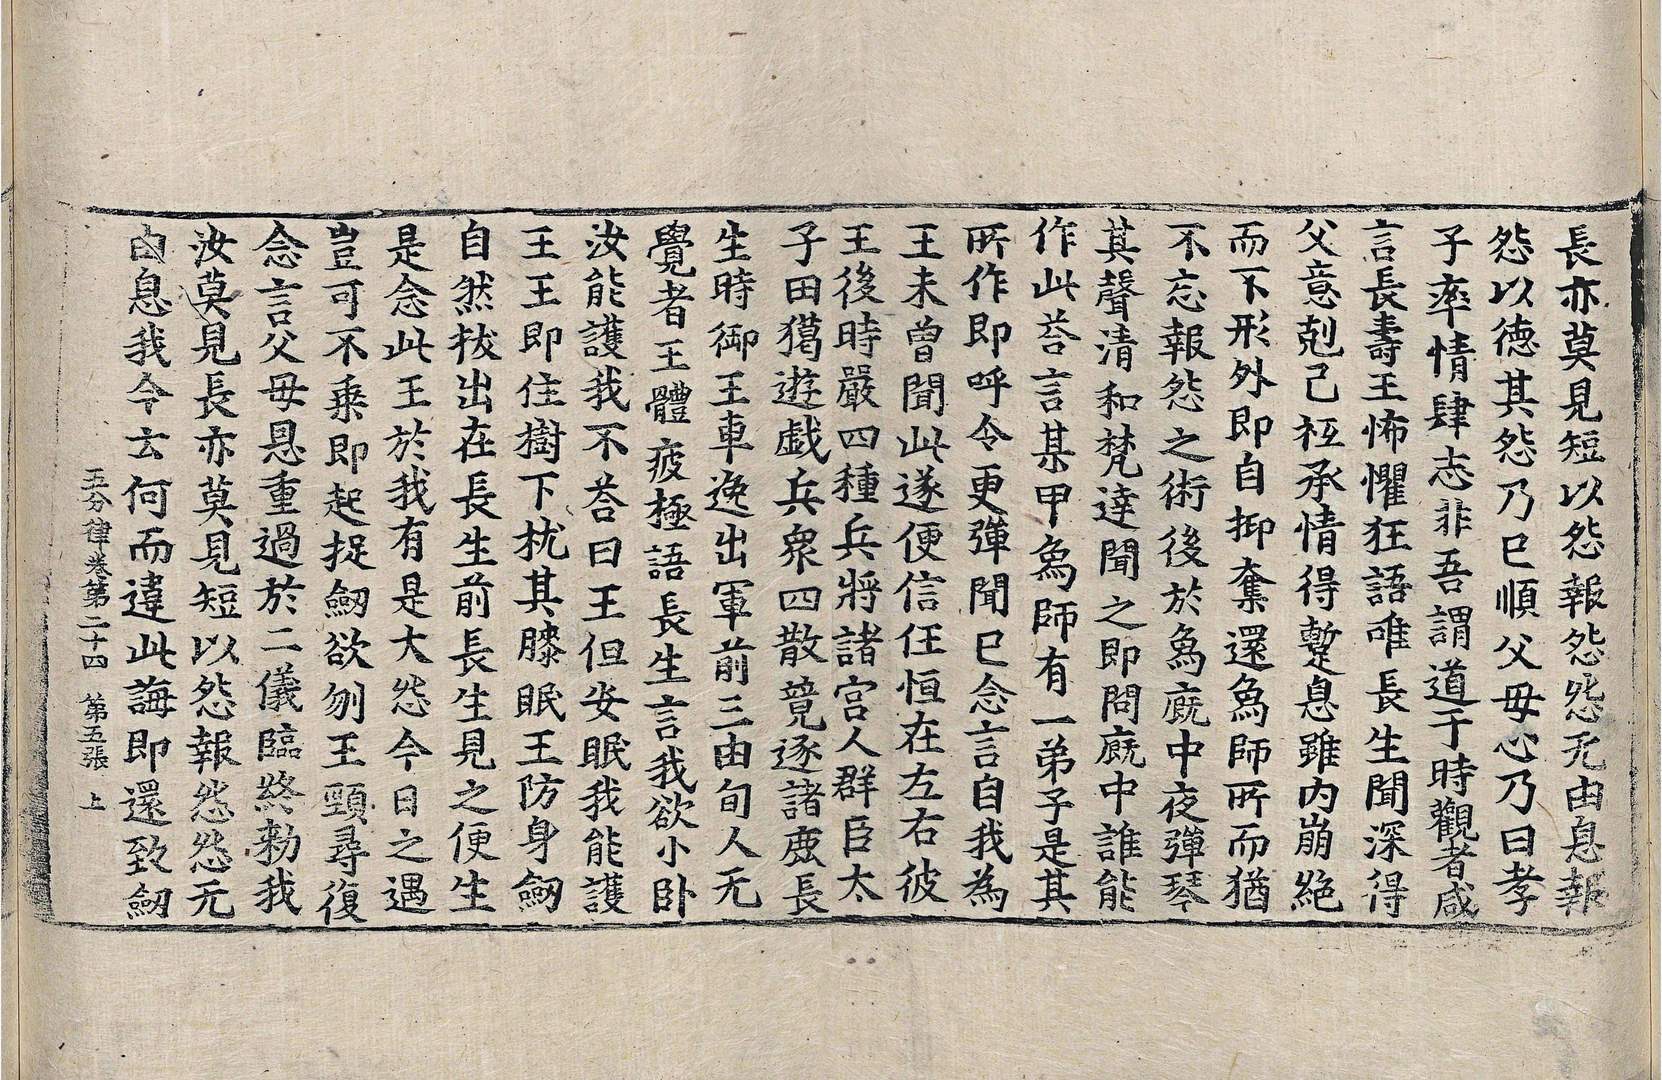 長亦莫見短以怨報怨怨无由息報
怨以德其怨乃已順父母心乃曰孝
子率情肆志非吾謂道于時觀者咸
言長壽王怖懼狂語唯長生聞深得
父意剋己祇承情得蹔息雖內崩絶
而不形外即自抑奪還為師所而猶
不忘報怨之術後於為廐中夜彈琴
其聲清和梵達聞之即問廐中誰能
作此荅言某甲為師有一弟子是其
所作即呼令更彈聞已念言自我為
王未曾聞此遂便信任恒在左右彼
王後時嚴四種兵將諸宮人群臣太
子田獦遊戱兵衆四散競逐諸鹿長
生時御王車逸出軍前三由旬人无
覺者王體疲極語長生言我欲小卧
汝能護我不荅曰王但安眠我能護
王王即住樹下枕其膝眠王防身劒
自然拔出在長生前長生見之便生
是念此王於我有是大怨今日之遇
豈可不乗即起捉劒欲刎王頸尋復
念言父母恩重過於二儀臨終勅我
汝莫見長亦莫見短以怨報怨怨无
由息我今云何而違此誨即還致劒
五分律卷第二十四 第五張 上